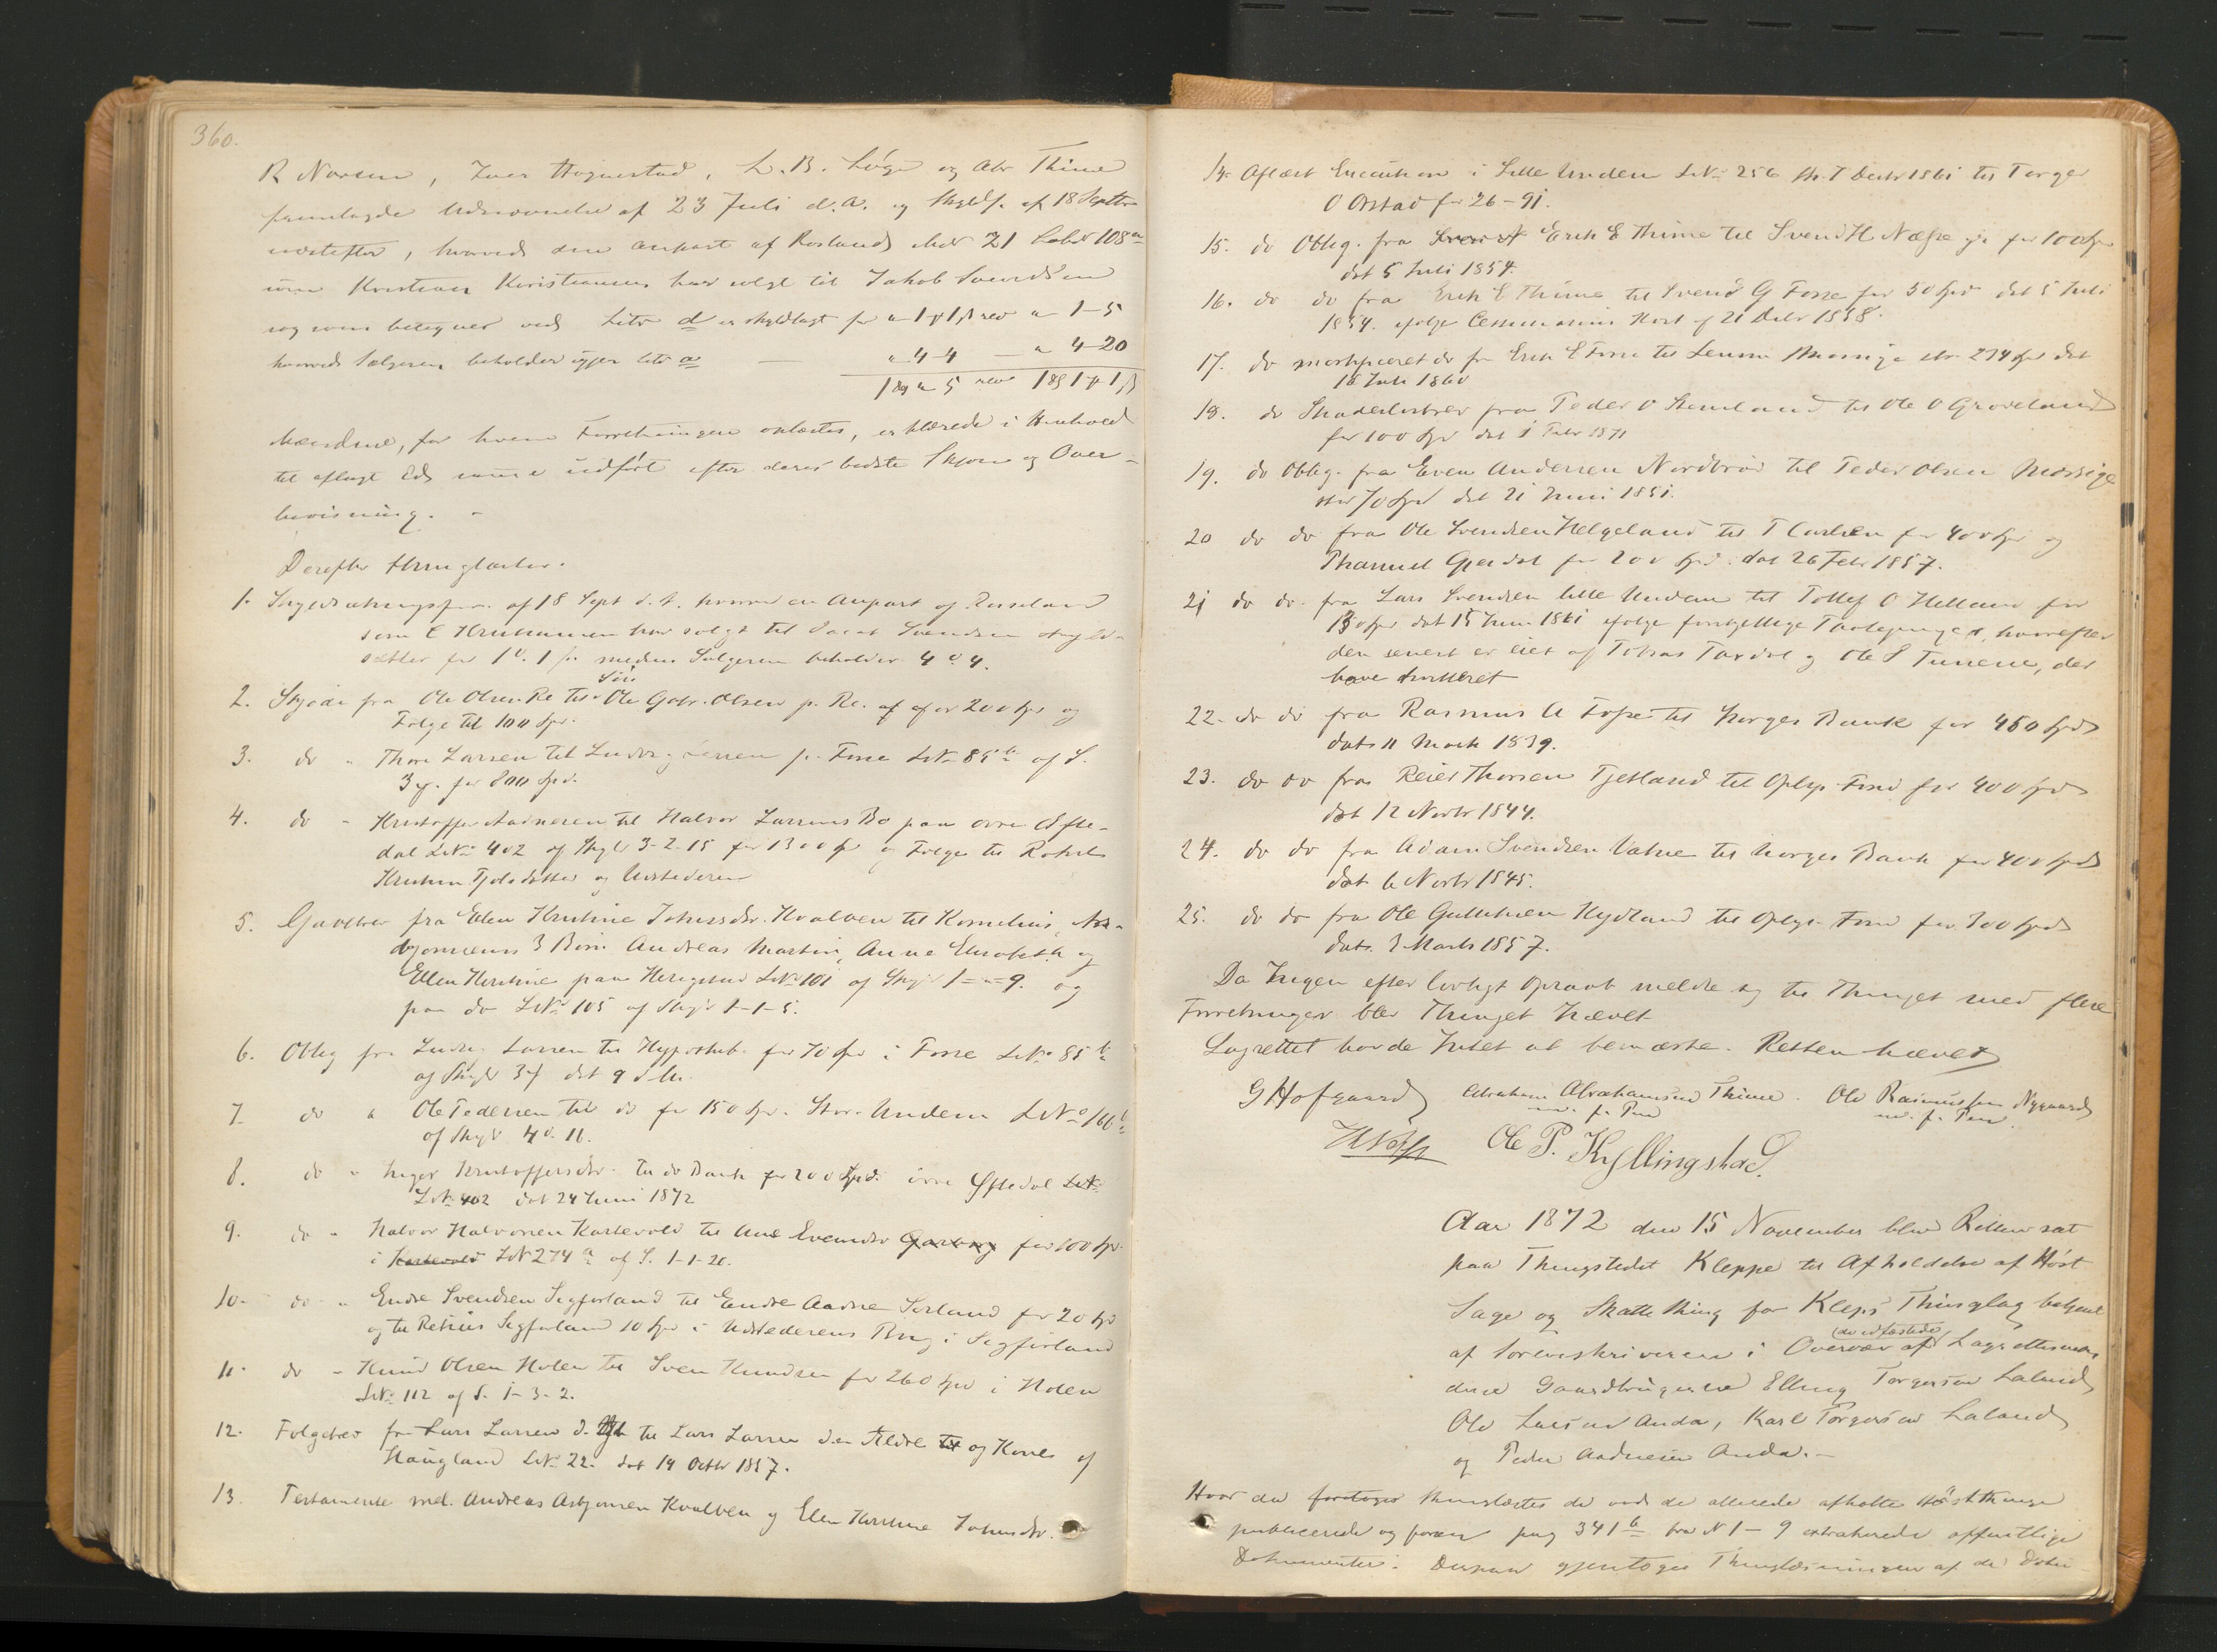 360.
R Narsen, Iver Høgnestad, L. B. Løge og Abr Thime
fremlagde Udnævnelse af 23 Juli d. A. og Skyldf. af 18 Septbr
næstefter, hvorved den anpart af Roslands Mno 21 Lobno 108 a
som Kristian Kristiansen har solgt til Jakob Svendsen
og som betegnes ved Litr d er skyldlagt for " 1 f 1 β rev " 1-5
hvorved Sælgeren beholder igjen Litr a — " 4-4 — " 4-20
1 " 5 rev
Mændene, for hvem Forretningen oplæstes, erklærede i Henhold
til aflagt Ed samme udført efter deres bedste Skjøn og Over-
bevisning. -
Derefter thinglæstes.
1. af 18 Sept d. A. hvorved en Anpart af Roseland
som C Kristiansen har solgt til Jacob Svendsen skyld-
sættes for 1 β. medens Sælgeren beholder 4 " 4.
2. Skjøde fra Ole Olsen Re til Søn Ole Gabr. Olsen p. Re. af for 200 Spd og
Følge til 100 Spd.
3. do " Thore Larsen til Ludvig Larsen p. Fosse LNo 85 b af S.
3 for 800 Spd.
4. do " Kristoffer Aadnesen til Halvor Larsens Bo paa øvre Øfte-
dal LNo 402 af Skyld 3-2-15 for 1300 Spd og Følge til
Kristine og Udstederen
5. Gavebrev fra Elen Kristine Johnsdr. Kvalven til Kornelius As-
bjørnsens 3 Børn Andreas Martin, Anne Elisabeth og
Ellen Kristine paa LNo 101 af Skyld 1 - " - 9. og
paa do LNo 105 af Skyld 1-1-5.
6. Oblig fra Ludvig Larsen til Hypothekb. for 70 Spd i Fosse LNo 85 b
af Skyld 3 dat 9 d. M.
7. do " Ole Pedersen til do for 150 Spd. Store Undem LNo 160 b
af Skyld 4 d. 16.
8. do " Inger Kristoffersdr. til do Bank for 200 Spd. øvre Øftedal
LNo 402 dat 24 Juni 1872
9. do " Halvor Halvorsen Kartevold til Ane Svendsdr Garborg for 100 Spd
i Kartevold LNo 274 a af S. 1-1-20.
10. do " Endre Svendsen Sigfarland til Endre Aadne Serland for 20 Spd
og til Sigfarland 10 Spd i Udstederens Brug i Sigfarland
11. do " Knud Olsen Holen til Sven Knudsen for 260 Spd i Holen
LNo 112 af S. 1-3-2.
12. Følgebrev fra Lars Larsen d. til Lars Larsen den Ældre og Kones af
Haugland LNo 22. dat 14 Octbr 1857.
13. Testamente mel. Andreas Asbjørnsen Kvalven og Elen Kristine Johnsdr.
14. Aflæst Execution i Lille Undem LNo 256 Th. 7 Decbr 1861 til Torger
O Orstad for 26-91.
15. do Oblig. fra Erik E Thime til Svend H Næsse for 100 Spd
dat 5 Juli 1854.
16. do do fra Erik E Thime til Svend G Fosse for 50 Spd dat 5 Juli
1854. ifølge af 21 Debr 1858.
17. do mortificeret do fra Erik E til Mossige str. 274 Spd dat
18 Juli 1860
18. do Skadesløsbrev fra Peder O til Ole O Groveland
for 100 Spd dat 1 Febr 1871
19. do Oblig. fra Even Andersen Nordbrød til Peder Olsen Mossige
str 70 Spd dat 21 Juni 1851.
20 do do fra Ole Svendsen Helgeland til T Carlsen for 400 Spd og
Thamuel Gjerdal for 200 Spd. dat 26 Febr 1857.
21 do do. fra Lars Svendsen lille Undem til Tollef O Helland for
Spd dat 15 Juni 1861 ifølge forskjellige Paategninger, hvorefter
den senest er eiet af Tobias Tardal og Ole S Tunene, der
have kvitteret
22. do do fra Rasmus A Fosse til Norges Bank for 450 Spd
dat 11 March 1839.
23. do do fra Reier Thorsen Tjetland til Oplys. Fond for 400 Spd
dat 12 Novbr 1844.
24. do do fra Adam Svendsen Vatne til Norges Bank for 400 Spd
dat 6 Novbr 1845.
25. do do fra Ole Hydland til Oplys. Fond for 300 Spd
dat. 3 Marts 1857.
Da Ingen efter lovligt Opraab meldte sig til Thinget med flere
Forretninger blev Thinget hævet
Lagrettet havde Intet at bemærke. Retten hævet
G Hofgaard Abraham Abrahamsen Thime. Ole Rasmussen Nygaard
m. f. Pen m. f. Pen.
Ole P. Kyllingstad.
Aar 1872 den 15 November blev Retten sat
paa Thingstedet Kleppe til Afholdelse af Høst
Sage og Skatte thing for Kleps Thinglag betjent
af Sorenskriveren i Overvær af (de edfæstede) Lagrettesmæn
dene Gaardbrugerne Elling Torgersen Laland
Ole Larsen Anda, Karl Torgersen Laland
og Peder Aadnesen Anda. -
Hvor da foretoges thinglæstes de ved de allerede afholdte Høstthinge
publicerede og foran pag 341 b fra N 1 - 9 extraherede offentlige
Dokumenter. Derpaa gjentoges Thinglæsningen af de Doku-